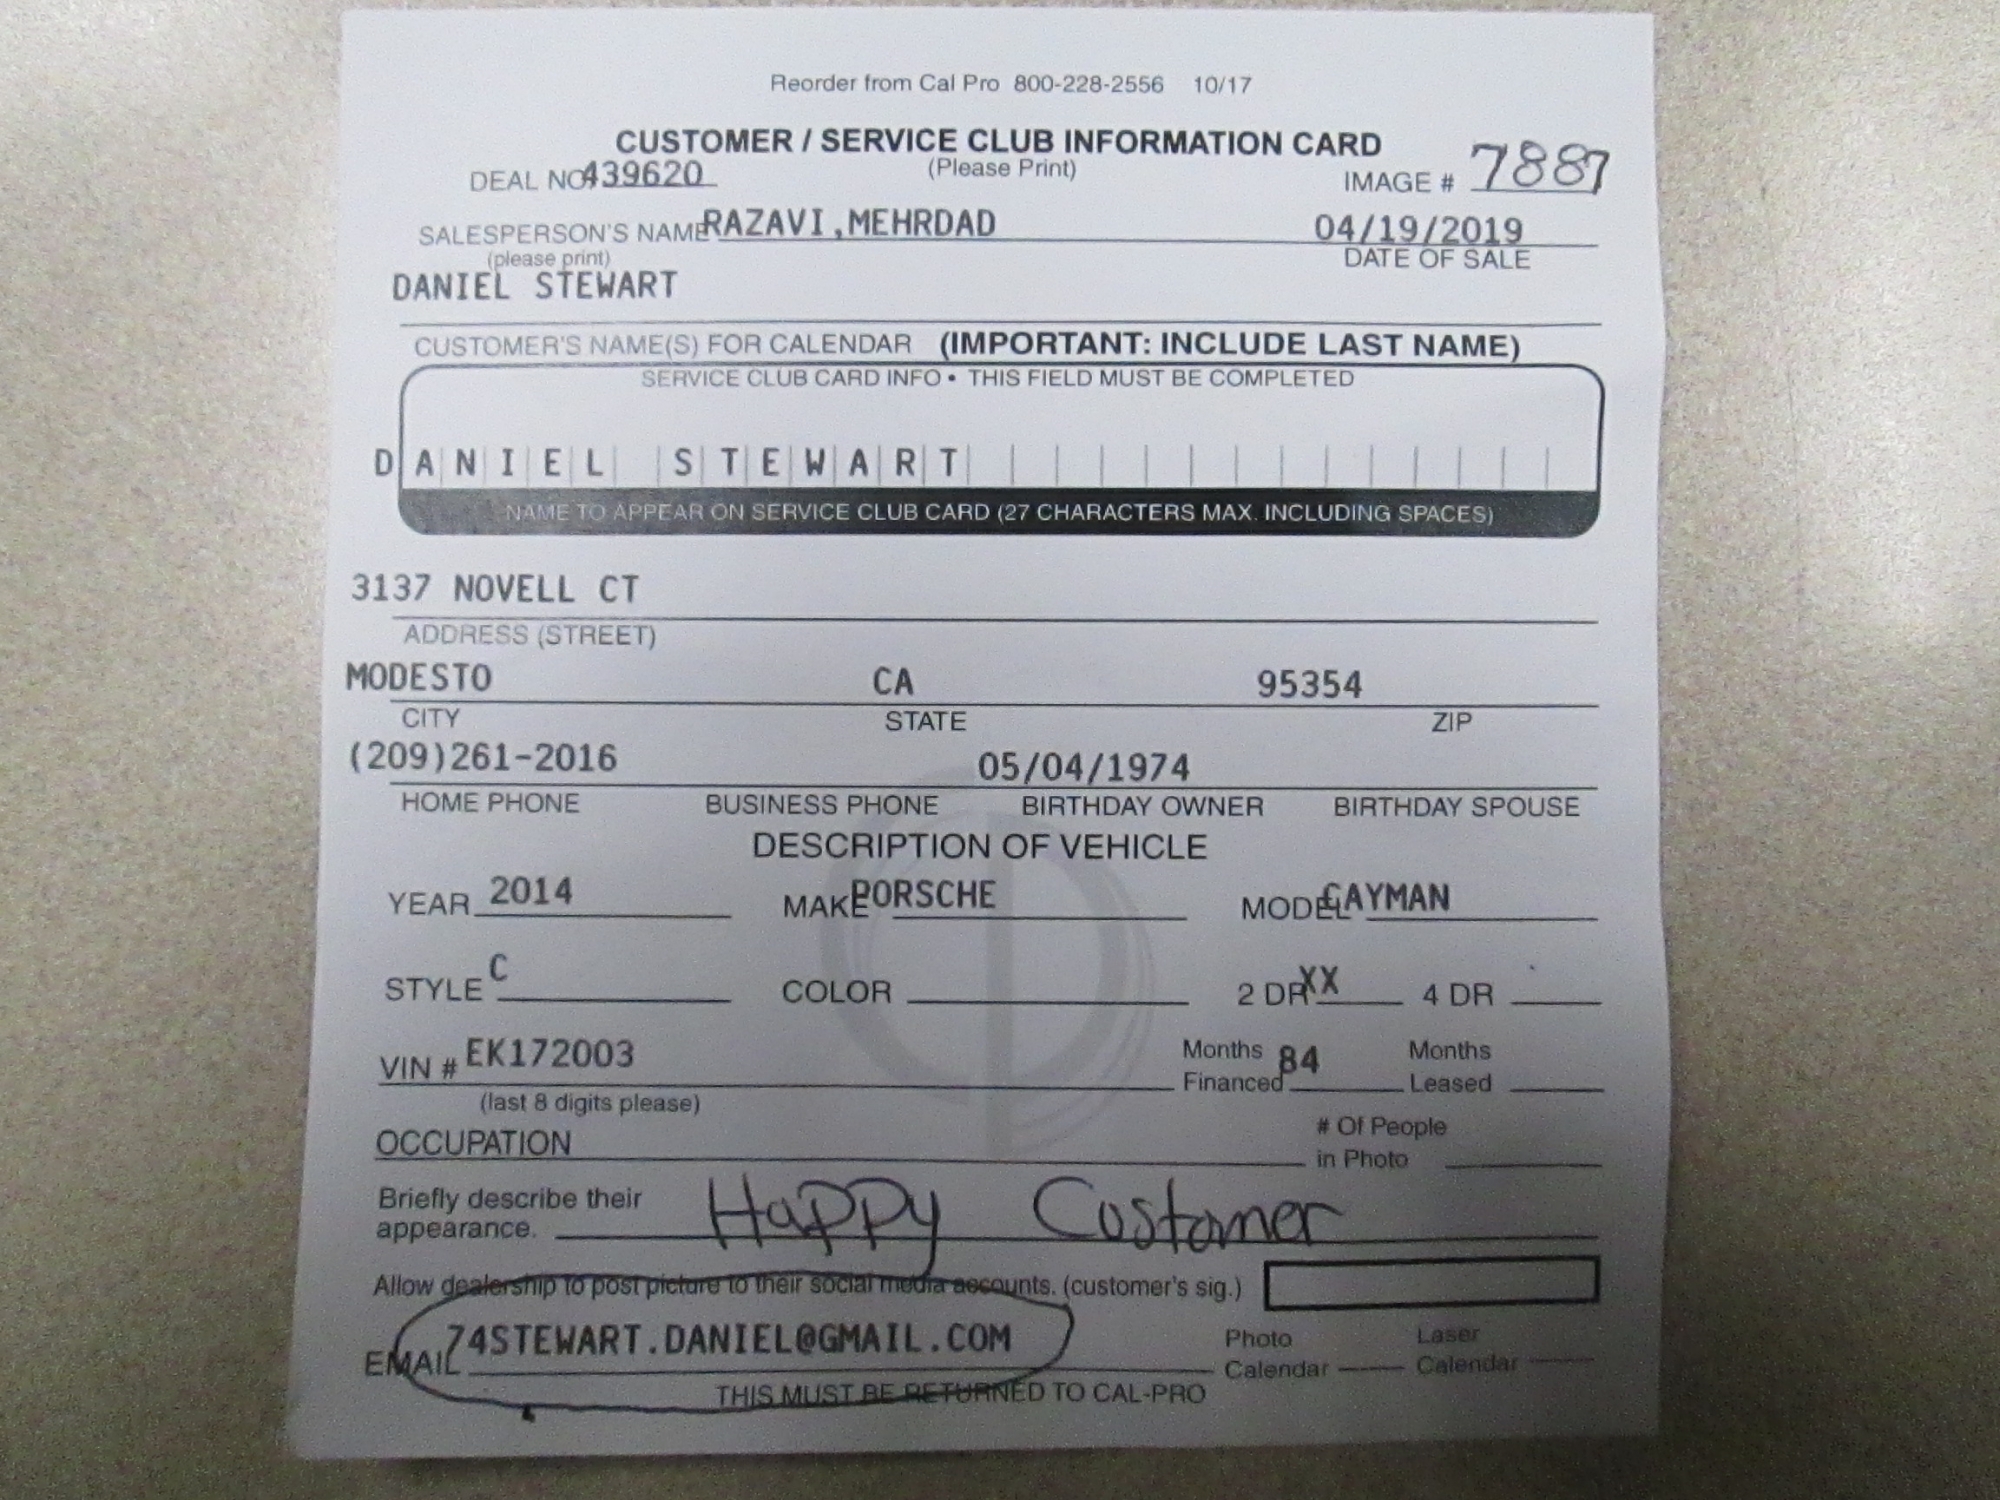 Reorder from Cal Pro 800-228-2556 10/17
CUSTOMER / SERVICE CLUB INFORMATION CARD
(Please Print)
DEAL NO. 439620 IMAGE # 7887
SALESPERSON'S NAME RAZAVI,MEHRDAD 04/19/2019
(please print) DATE OF SALE
DANIEL STEWART
CUSTOMER'S NAME(S) FOR CALENDAR (IMPORTANT: INCLUDE LAST NAME)
SERVICE CLUB CARD INFO • THIS FIELD MUST BE COMPLETED
DANIEL STEWART
NAME TO APPEAR ON SERVICE CLUB CARD (27 CHARACTERS MAX. INCLUDING SPACES)
3137 NOVELL CT
ADDRESS (STREET)
MODESTO CA 95354
CITY STATE ZIP
(209)261-2016 05/04/1974
HOME PHONE BUSINESS PHONE BIRTHDAY OWNER BIRTHDAY SPOUSE
DESCRIPTION OF VEHICLE
YEAR 2014 MAKE PORSCHE MODEL CAYMAN
STYLE C COLOR 2 DR XX 4 DR
VIN # EK172003 Months Financed 84 Months Leased
(last 8 digits please)
OCCUPATION # Of People in Photo
Briefly describe their appearance. Happy Customer
Allow dealership to post picture to their social media accounts. (customer's sig.)
EMAIL 74STEWART.DANIEL@GMAIL.COM Photo Calendar Laser Calendar
THIS MUST BE RETURNED TO CAL-PRO